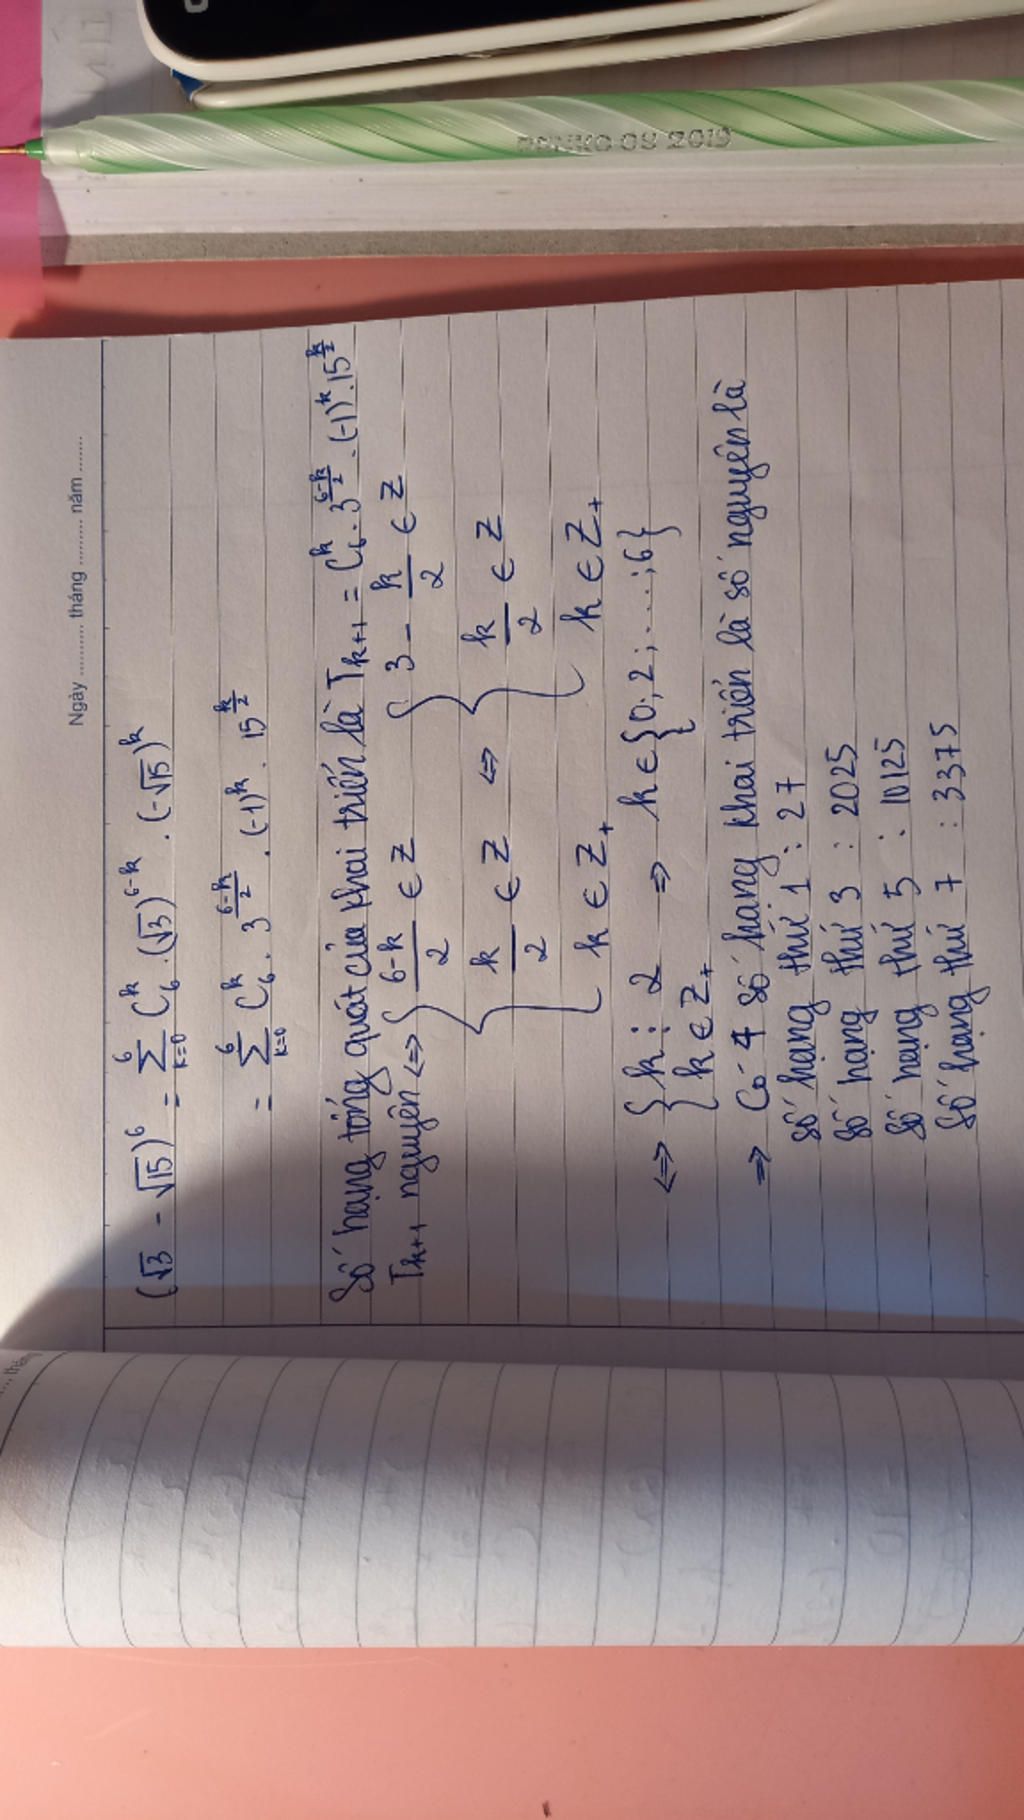 BENKO 08 2019
Ngày .......... tháng ......... năm .......
(√3 - √15)^6 = ∑_{k=0}^{6} C_6^k . (√3)^{6-k} . (-√15)^k
= ∑_{k=0}^{6} C_6^k . 3^{(6-k)/2} . (-1)^k . 15^{k/2}
Số hạng tổng quát của khai triển là T_{k+1} = C_6^k . 3^{(6-k)/2} . (-1)^k . 15^{k/2}
T_{k+1} nguyên <=> { (6-k)/2 ∈ Z { 3 - k/2 ∈ Z
k/2 ∈ Z <=> k/2 ∈ Z
k ∈ Z_+ k ∈ Z_+
<=> { k ⋮ 2 => k ∈ {0; 2; ....; 6}
k ∈ Z_+
=> Có 4 số hạng khai triển là số nguyên là
số hạng thứ 1 : 27
số hạng thứ 3 : 2025
số hạng thứ 5 : 10125
số hạng thứ 7 : 3375